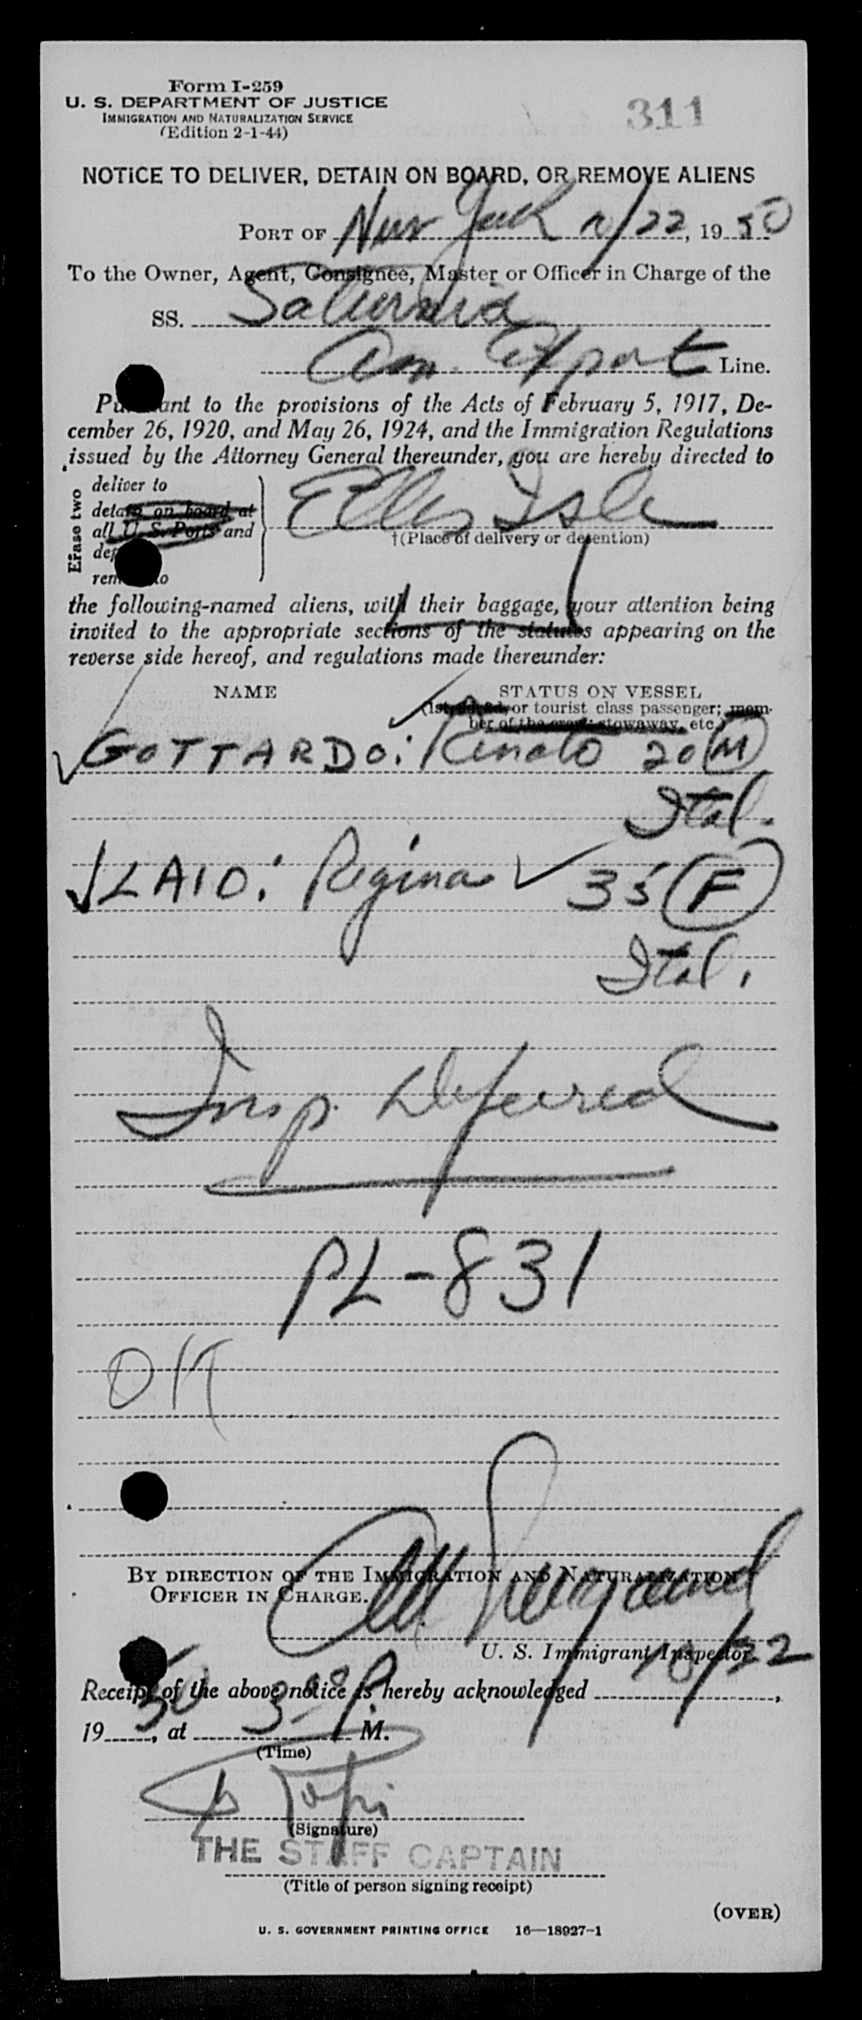 Form I-259
U. S. DEPARTMENT OF JUSTICE
IMMIGRATION AND NATURALIZATION SERVICE
(Edition 2-1-44)
311
NOTICE TO DELIVER, DETAIN ON BOARD, OR REMOVE ALIENS
PORT OF New York 10/22, 19 50
To the Owner, Agent, Consignee, Master or Officer in Charge of the
SS. Saturnia
Am. Export Line.
Pursuant to the provisions of the Acts of February 5, 1917, De-
cember 26, 1920, and May 26, 1924, and the Immigration Regulations
issued by the Attorney General thereunder, you are hereby directed to
Erase two
deliver to
detain on board at
all U. S. Ports and
Ellis Isle
†(Place of delivery or detention)
the following-named aliens, with their baggage, your attention being
invited to the appropriate sections of the statutes appearing on the
reverse side hereof, and regulations made thereunder:
NAME STATUS ON VESSEL
or tourist class passenger; mem-
ber of the crew; stowaway, etc.)
✓ GOTTARDO: Renato 20 M
Ital.
✓ LAIO: Regina ✓ 35 F
Ital.
Insp. Deferred
PL-831
OK
BY DIRECTION OF THE IMMIGRATION AND NATURALIZATION
OFFICER IN CHARGE.
U. S. Immigrant Inspector.
Receipt of the above notice is hereby acknowledged 10/22,
19 50, at 3 P. M.
(Time)
(Signature)
THE STAFF CAPTAIN
(Title of person signing receipt)
(OVER)
U. S. GOVERNMENT PRINTING OFFICE 16—18927-1